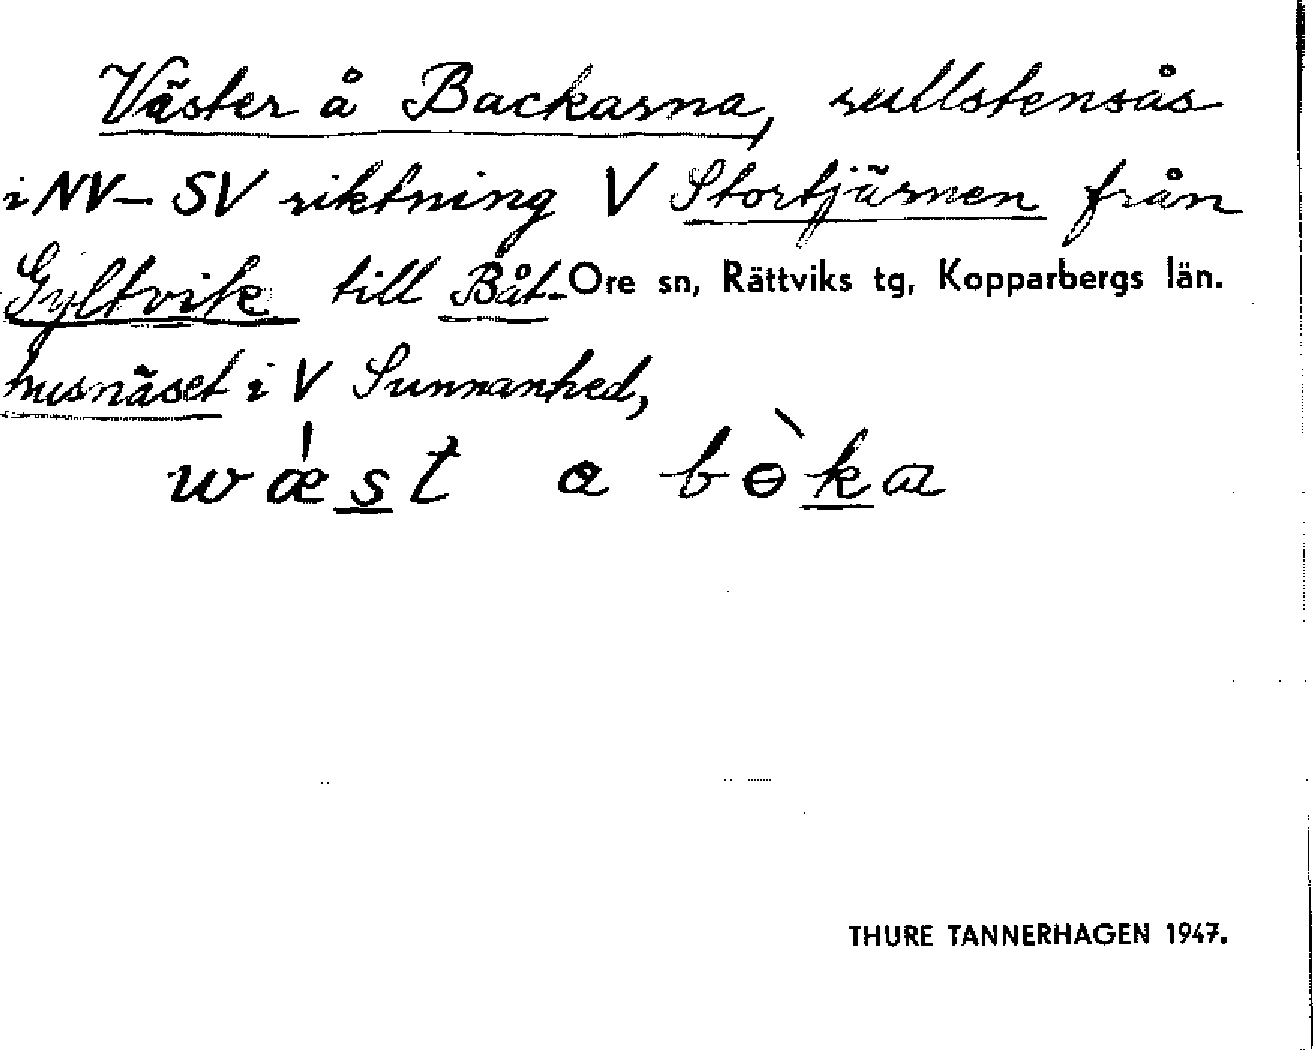 Väster å Backarna, rullstensås
i NV– SV riktning V Stortjärnen från
Gyltvik till Båt- Ore sn, Rättviks tg, Kopparbergs län.
husnäset i V Sunnanhed,
wǽst a bɵ̀ka
THURE TANNERHAGEN 1947.